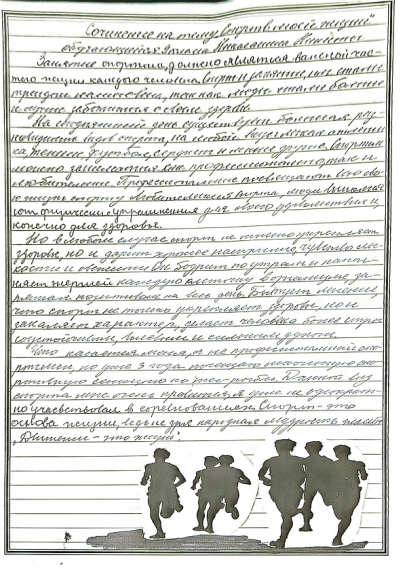 Сочинение на тему "Спорт в моей жизни"
обучающийся 5 класса Никитина
Занятие спортом, должно являться важной час-
тью жизни каждого человека. Спорт и занятие им стали
трендом нашего века, так как люди стали больше
и лучше заботиться о своём здоровье.
На сегодняшний день существует большая раз-
новидность видов спорта, на любой вкус: лёгкая атлети-
ка, теннис, футбол, сёрфинг и многие другие. Спортом
можно заниматься как профессионально, так и
любительски. Профессионалы посвящают всю сво-
ю жизнь спорту. Любители спорта, люди выполня-
ют физические упражнения для своего удовольствия и
конечно для здоровья.
Но в любом случае спорт не только укрепляет
здоровье, но и дарит хорошее настроение, чувство лёг-
кости и свежести. Он бодрит по утрам и напол-
няет энергией каждую клетку организма, за-
ряжая позитивом на весь день. Бытует мнение,
что спорт не только укрепляет здоровье, но и
закаляет характер, делает человека более стрес-
соустойчивым, волевым и сильным духом.
Что касается меня, я не профессиональный спо-
ртсмен, но уже 3 года посещаю школьную спо-
ртивную секцию по. Данный вид
спорта мне очень нравится, я уже не однократ-
но участвовал в соревнованиях. Спорт - это
основа жизни, ведь не зря народная мудрость гласит:
"Движение - это жизнь".